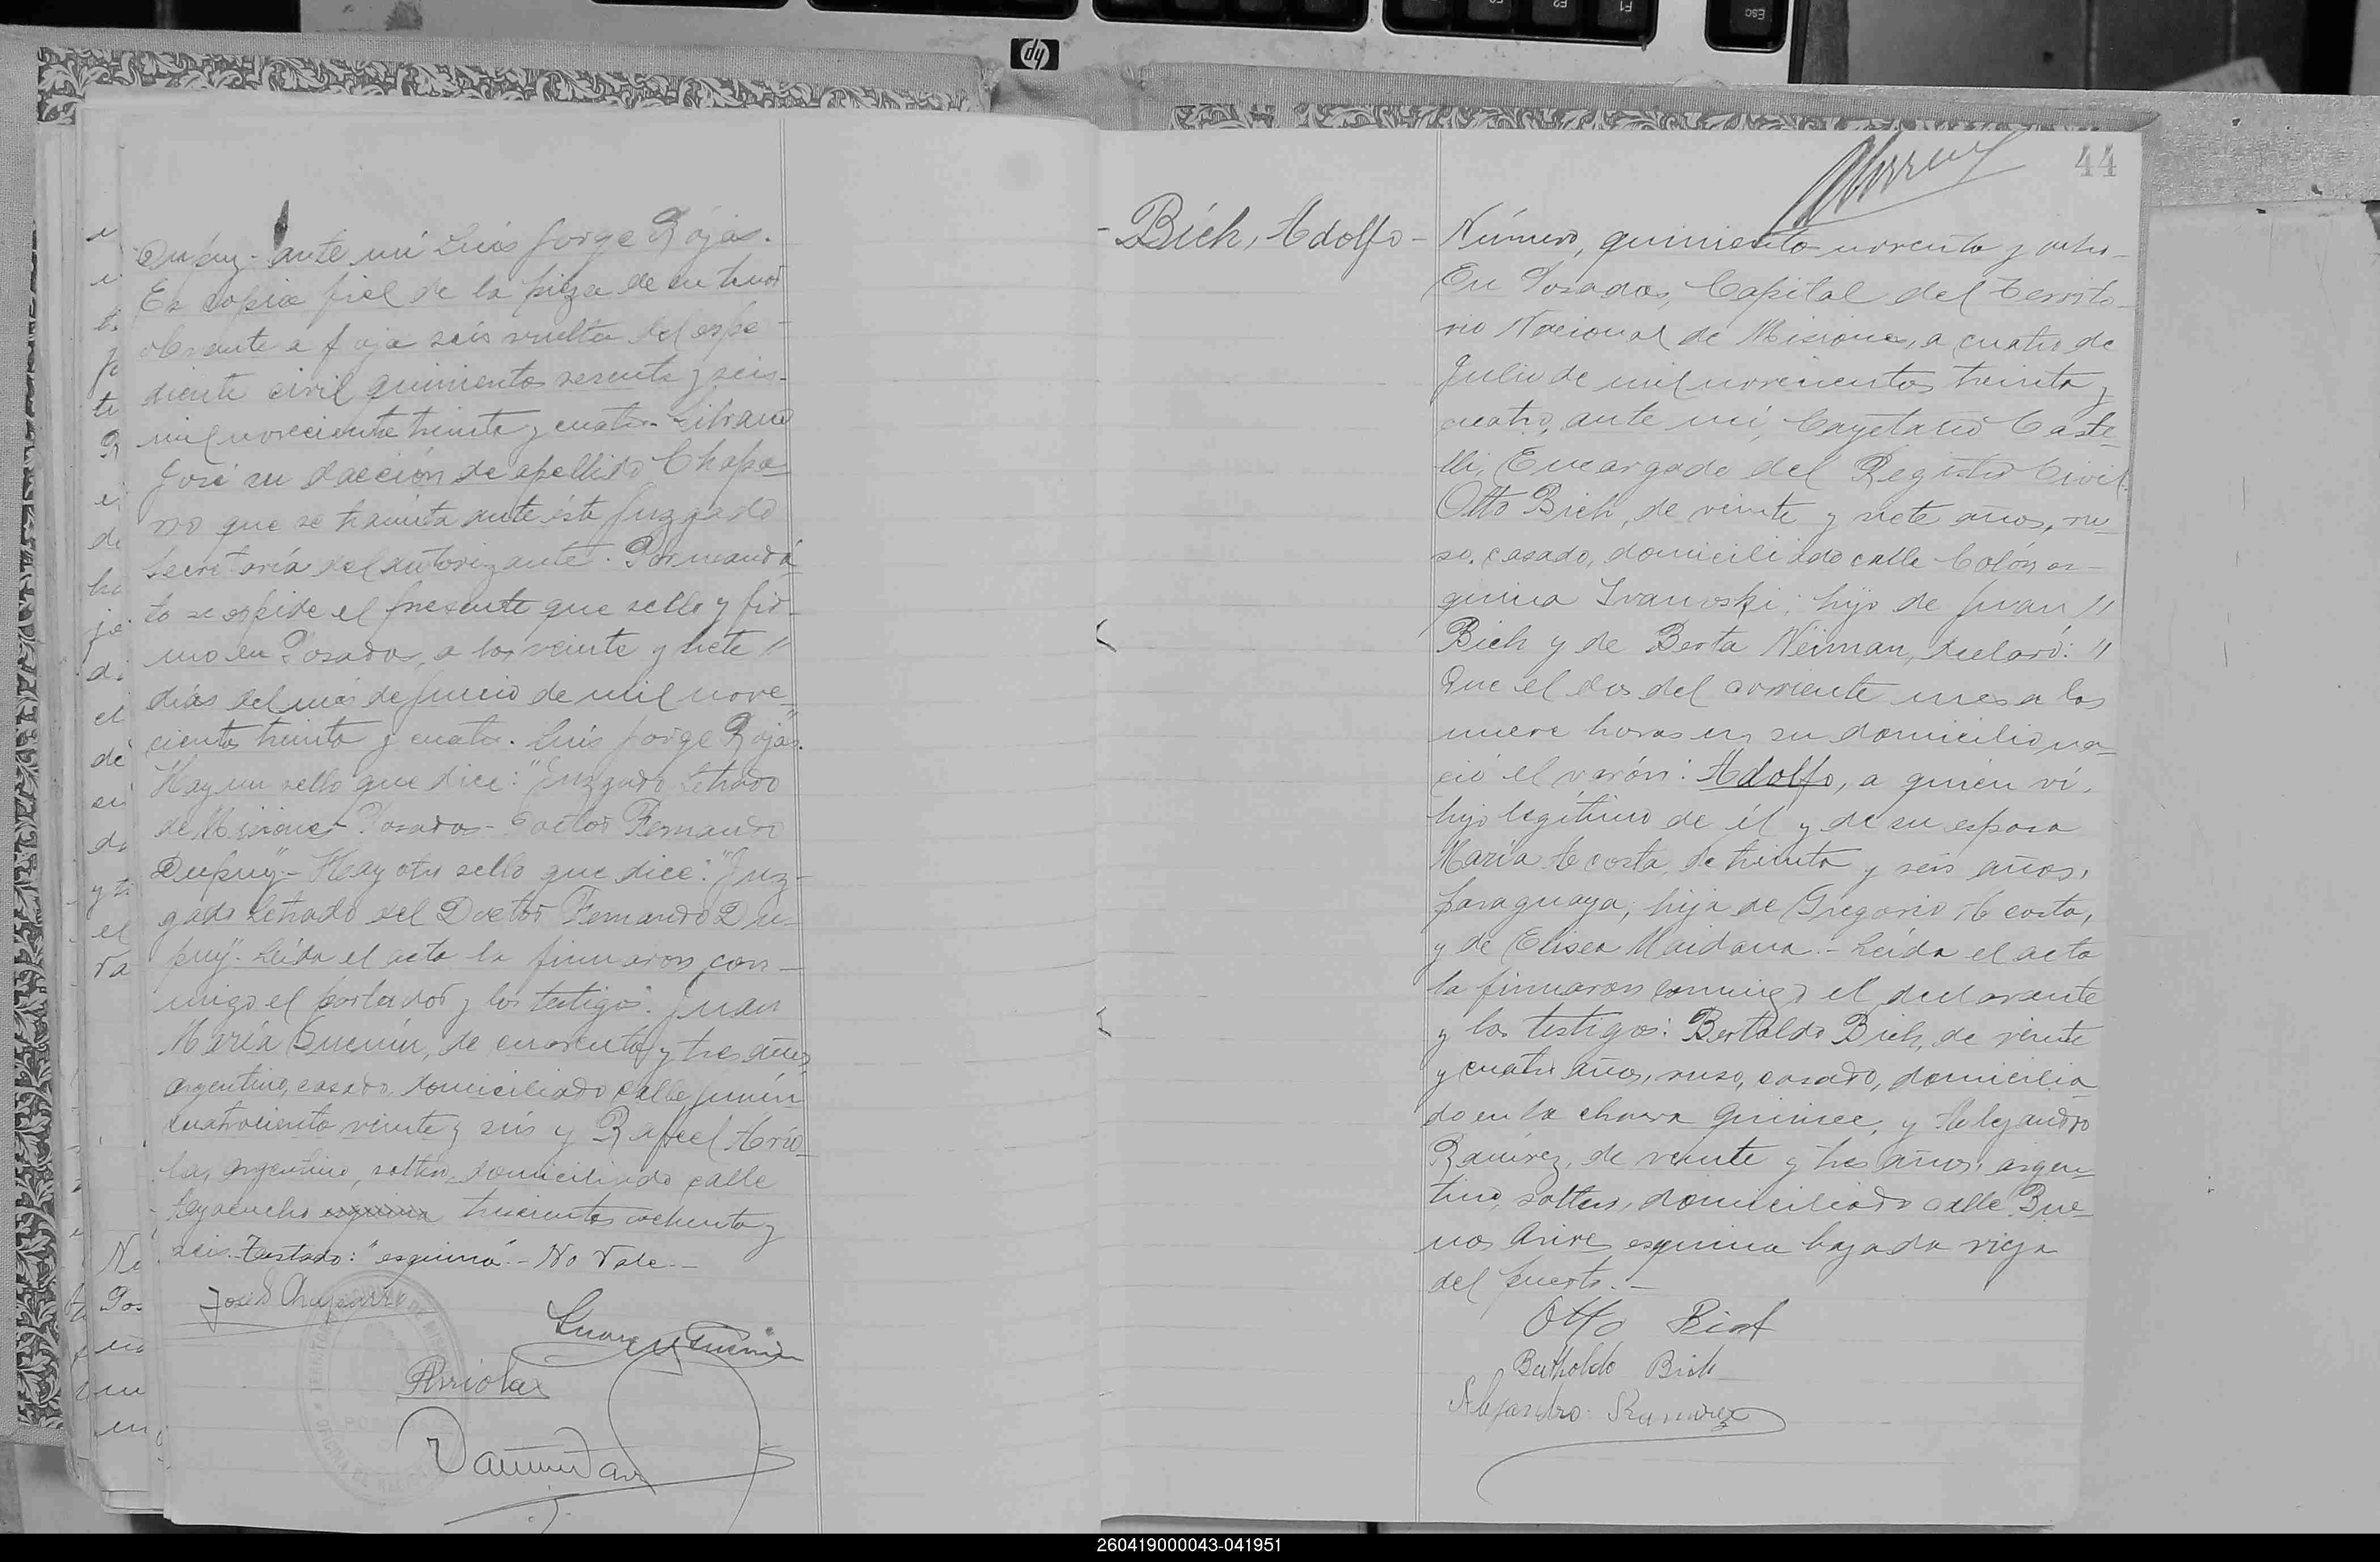 Dupuy - ante mí Luis Jorge Rojas.
Es copia fiel de la pieza de su tenor
obrante a foja seis vuelta del expe-
diente civil quinientos sesenta y seis-
mil novecientos treinta y cuatro-
José su dacción de apellido Chapa
rro que se tramita ante éste Juzgado
Secretaría del autorizante. Por mandá
to se expide el presente que sello y fir-
mo en Posadas, a los veinte y siete //
días del mes de Junio de mil nove-
cientos treinta y cuatro. Luis Jorge Rojas".
Hay un sello que dice: "Juzgado Letrado
de Misiones - Posadas - Doctor Fernando
Dupuy" - Hay otro sello que dice: "Juz-
gado Letrado del Doctor Fernando Du-
puy". Leída el acta la firmaron con-
migo el portador y los testigos: Juan
María Guenin, de cuarenta y tres años,
argentino, casado, domiciliado calle Junín
cuatrocientos veinte y seis y Rafael Arrio-
la, argentino, soltero, domiciliado calle
Ayacucho esquina trescientos ochenta y
seis. Testado: "esquina" - No Vale.-
José D Chaparro
Juan M Guenin
RArriola
44
- Bich, Adolfo -
Número, quinientos noventa y ocho-
En Posadas, Capital del Territo-
rio Nacional de Misiones, a cuatro de
Julio de mil novecientos treinta y
cuatro, ante mí, Cayetano Caste-
lli, Encargado del Registro Civil.
Otto Bich, de veinte y siete años, ru-
so, casado, domiciliado calle Colón es-
quina Ivanoski; hijo de Juan //
Bich y de Berta Neiman, declaró: //
Que el dos del corriente mes a las
nueve horas en su domicilio na-
ció el varón: Adolfo, a quién ví,
hijo legítimo de él y de su esposa
María Acosta, de treinta y seis años,
paraguaya, hija de Gregorio Acosta,
y de Elisea Maidana.- Leída el acta
la firmaron conmigo el declarante
y los testigos: Bertoldo Bich, de veinte
y cuatro años, ruso, casado, domicilia
do en la chacra quince, y Alejandro
Ramírez, de veinte y tres años, argen-
tino, soltero, domiciliado calle Bue-
nos Aires esquina bajada vieja
del puerto.-
Otto Bich
Bertholdo Bich
Alejandro Ramirez
260419000043-041951